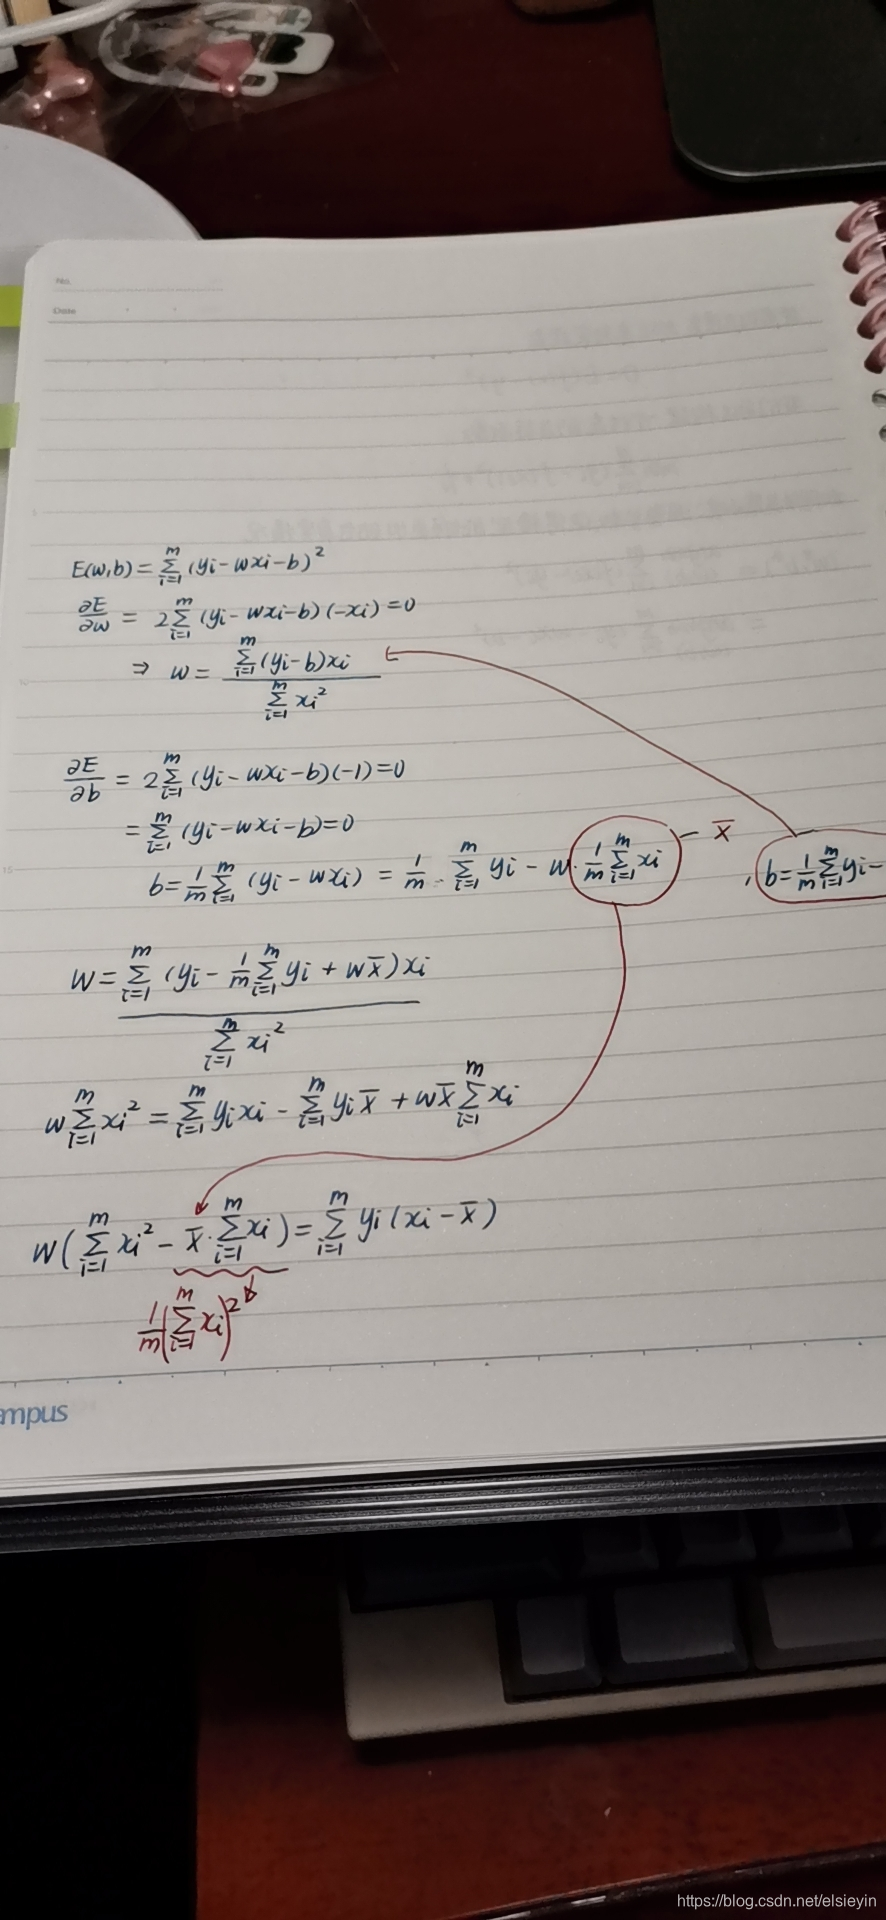 No.
Date
E(w,b) = \sum_{i=1}^{m} (yi - wxi - b)^2
\frac{∂E}{∂w} = 2\sum_{i=1}^{m} (yi - wxi - b)(-xi) = 0
⇒ w = \frac{\sum_{i=1}^{m} (yi - b)xi}{\sum_{i=1}^{m} xi^2}
\frac{∂E}{∂b} = 2\sum_{i=1}^{m} (yi - wxi - b)(-1) = 0
= \sum_{i=1}^{m} (yi - wxi - b) = 0
b = \frac{1}{m}\sum_{i=1}^{m} (yi - wxi) = \frac{1}{m} · \sum_{i=1}^{m} yi - w · \frac{1}{m}\sum_{i=1}^{m} xi — \bar{x} , b = \frac{1}{m}\sum_{i=1}^{m} yi -
15
w = \frac{\sum_{i=1}^{m} (yi - \frac{1}{m}\sum_{i=1}^{m} yi + w\bar{x})xi}{\sum_{i=1}^{m} xi^2}
w\sum_{i=1}^{m} xi^2 = \sum_{i=1}^{m} yixi - \sum_{i=1}^{m} yi\bar{x} + w\bar{x}\sum_{i=1}^{m} xi
w(\sum_{i=1}^{m} xi^2 - \bar{x} · \sum_{i=1}^{m} xi) = \sum_{i=1}^{m} yi(xi - \bar{x})
\frac{1}{m}(\sum_{i=1}^{m} xi)^2
mpus
https://blog.csdn.net/elsieyin